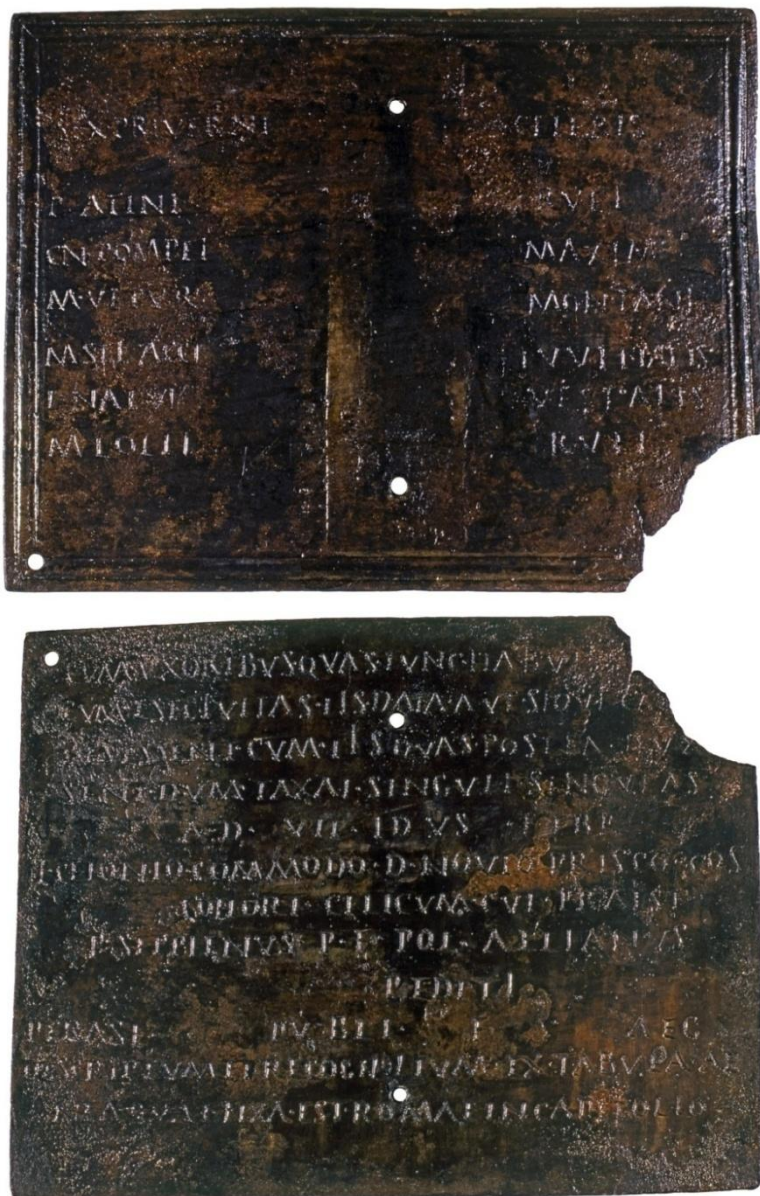 SEX PRIVERNI CELERIS
P · ATINI RVFI
CN POMPEI MAXIM
M · VETTVRI MONTANI
M STLACCI IVVENALIS
L NAEVI VESTALIS
M LOLLI
CVM · VXORIBVS QVAS TVNC HABVI
CVM EST CIVITAS · IIS DATA · AVT SI QVI CA
ESSENT · CVM · IIS QVAS POSTEA DVX
SENT · DVM TAXAT · SINGVLI SINGVLAS
A · D · VII · IDVS · FEBR
CEIONIO · COMMODO · D · NOVIO PRISCO · COS
COHORT · CILICVM · CVI PRAEST
P · F · POL · AELIANVS
PEDITI
PERASI PVBLI · F · AEG
DESCRIPTVM ET RECOGNITVM · EX TABVLA AE
NEA QVAE FIXA · EST ROMAE IN CAPITOLIO